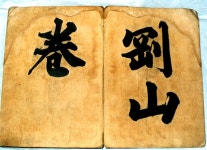 劉山
卷